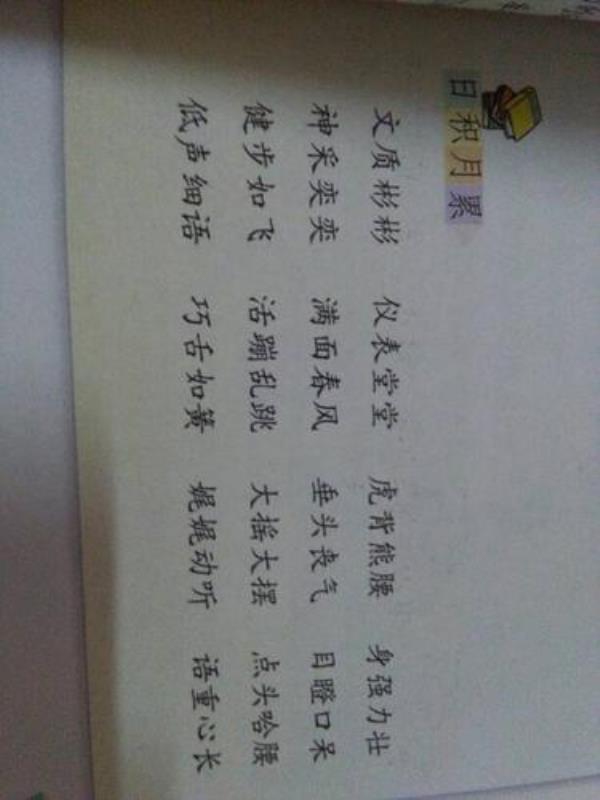 日积月累
文质彬彬 仪表堂堂 虎背熊腰 身强力壮
神采奕奕 满面春风 垂头丧气 目瞪口呆
健步如飞 活蹦乱跳 大摇大摆 点头哈腰
低声细语 巧舌如簧 娓娓动听 语重心长